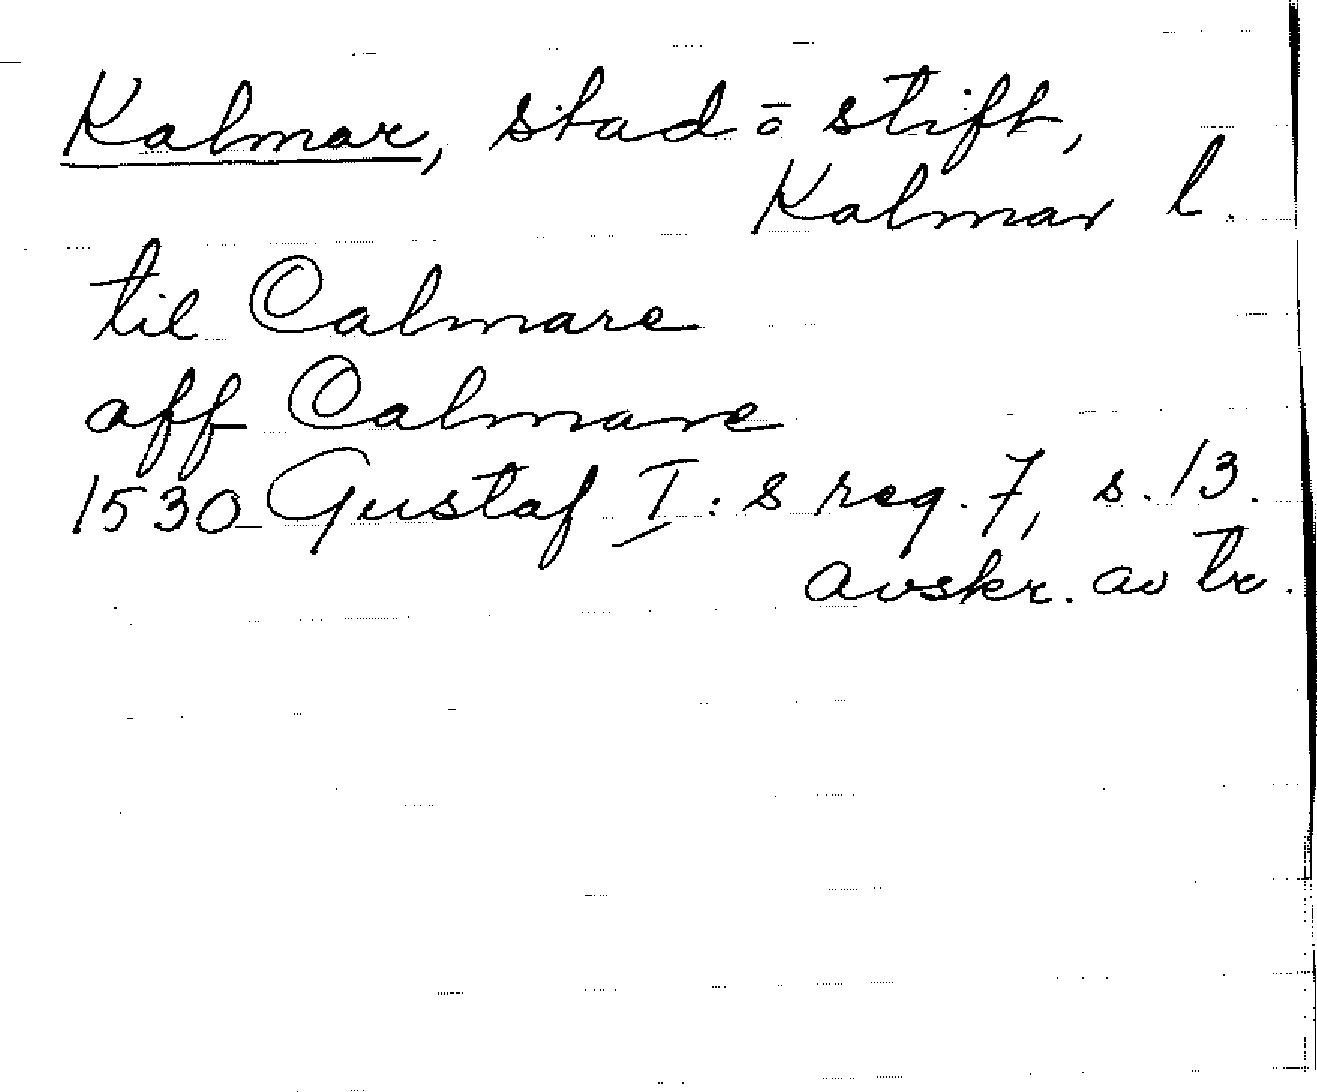 Kalmar, stad o stift,
Kalmar l.
til Calmare
aff Calmare
1530 Gustaf I:s reg. 7, s. 13.
avskr. av tr.